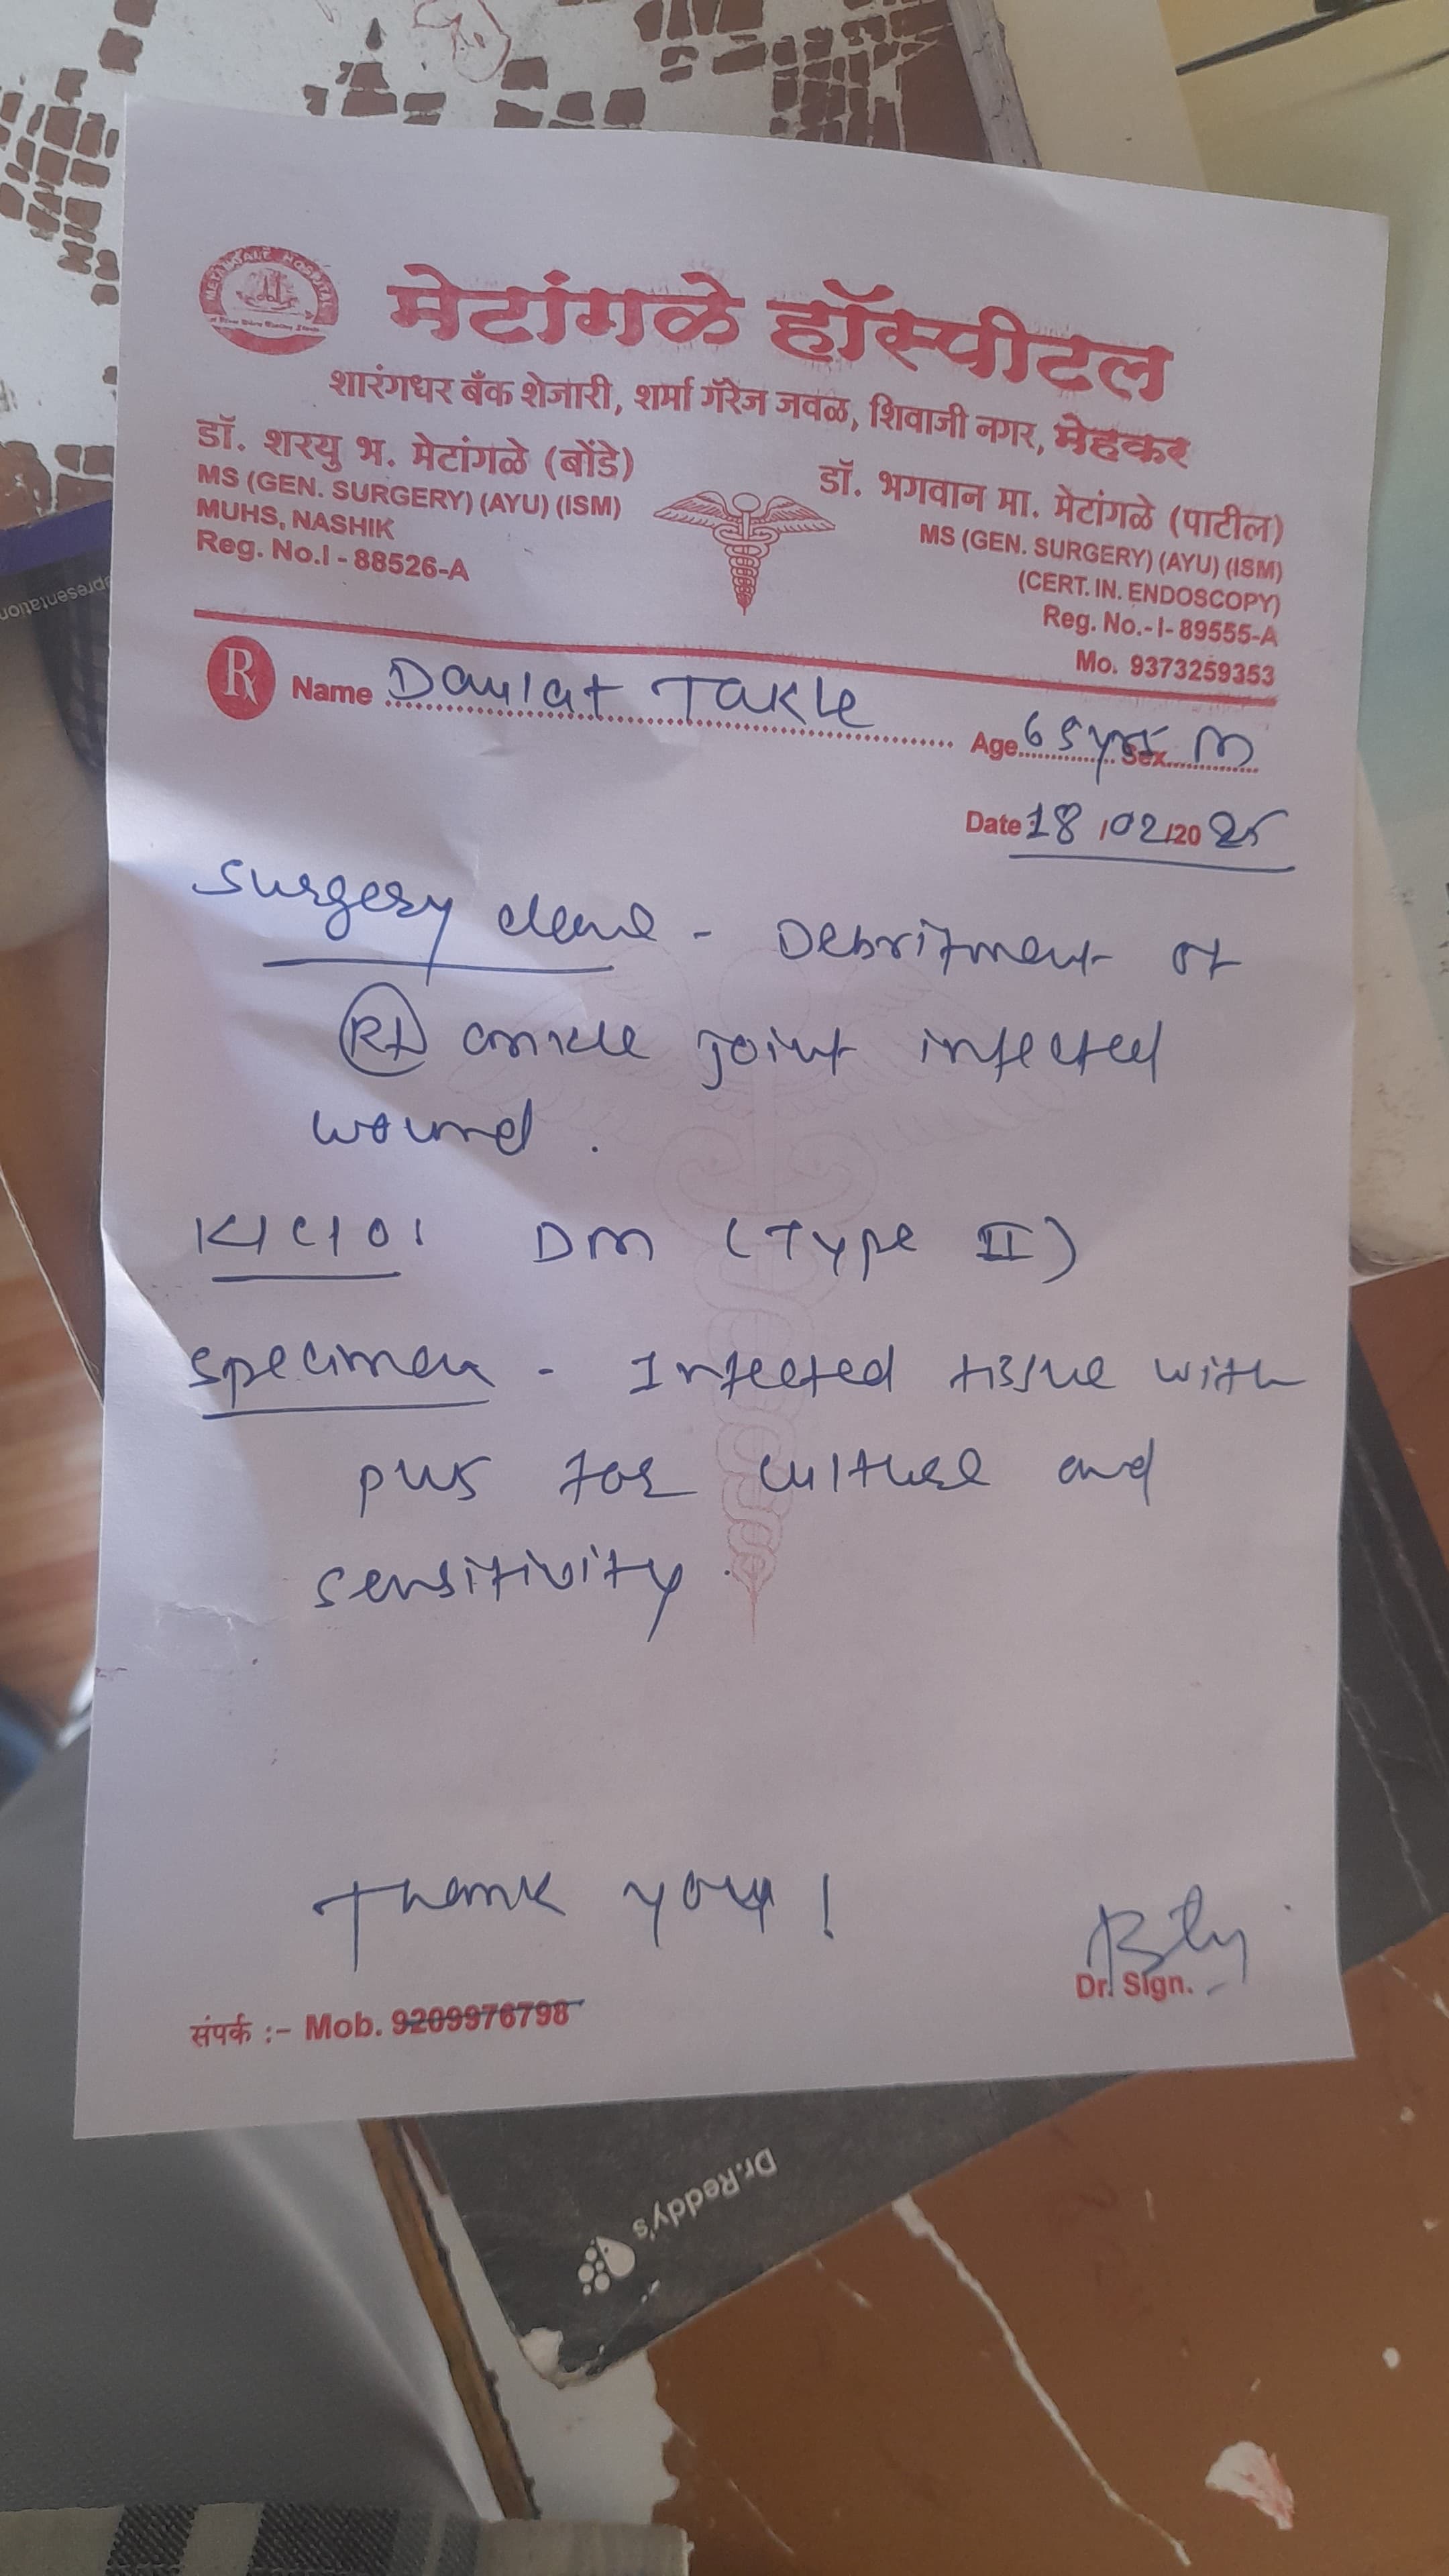 METANGALE HOSPITAL
मेटांगळे हॉस्पीटल
शारंगधर बँक शेजारी, शर्मा गॅरेज जवळ, शिवाजी नगर, मेहकर
डॉ. शरयु भ. मेटांगळे (बोंडे)
MS (GEN. SURGERY) (AYU) (ISM)
MUHS, NASHIK
Reg. No.I - 88526-A
डॉ. भगवान मा. मेटांगळे (पाटील)
MS (GEN. SURGERY) (AYU) (ISM)
(CERT. IN. ENDOSCOPY)
Reg. No.- I- 89555-A
Mo. 9373259353
Rx Name Daulat Takle
Age 65 yrs Sex M
Date 18/02/2025
Surgery done - Debritment of
Rt ankle joint infected
wound.
K/C/O: DM (Type II)
Specimen - Infected tissue with
pus for culture and
sensitivity.
Thank you!
Dr. Sign.
संपर्क :- Mob. 9209976798
Dr.Reddy's